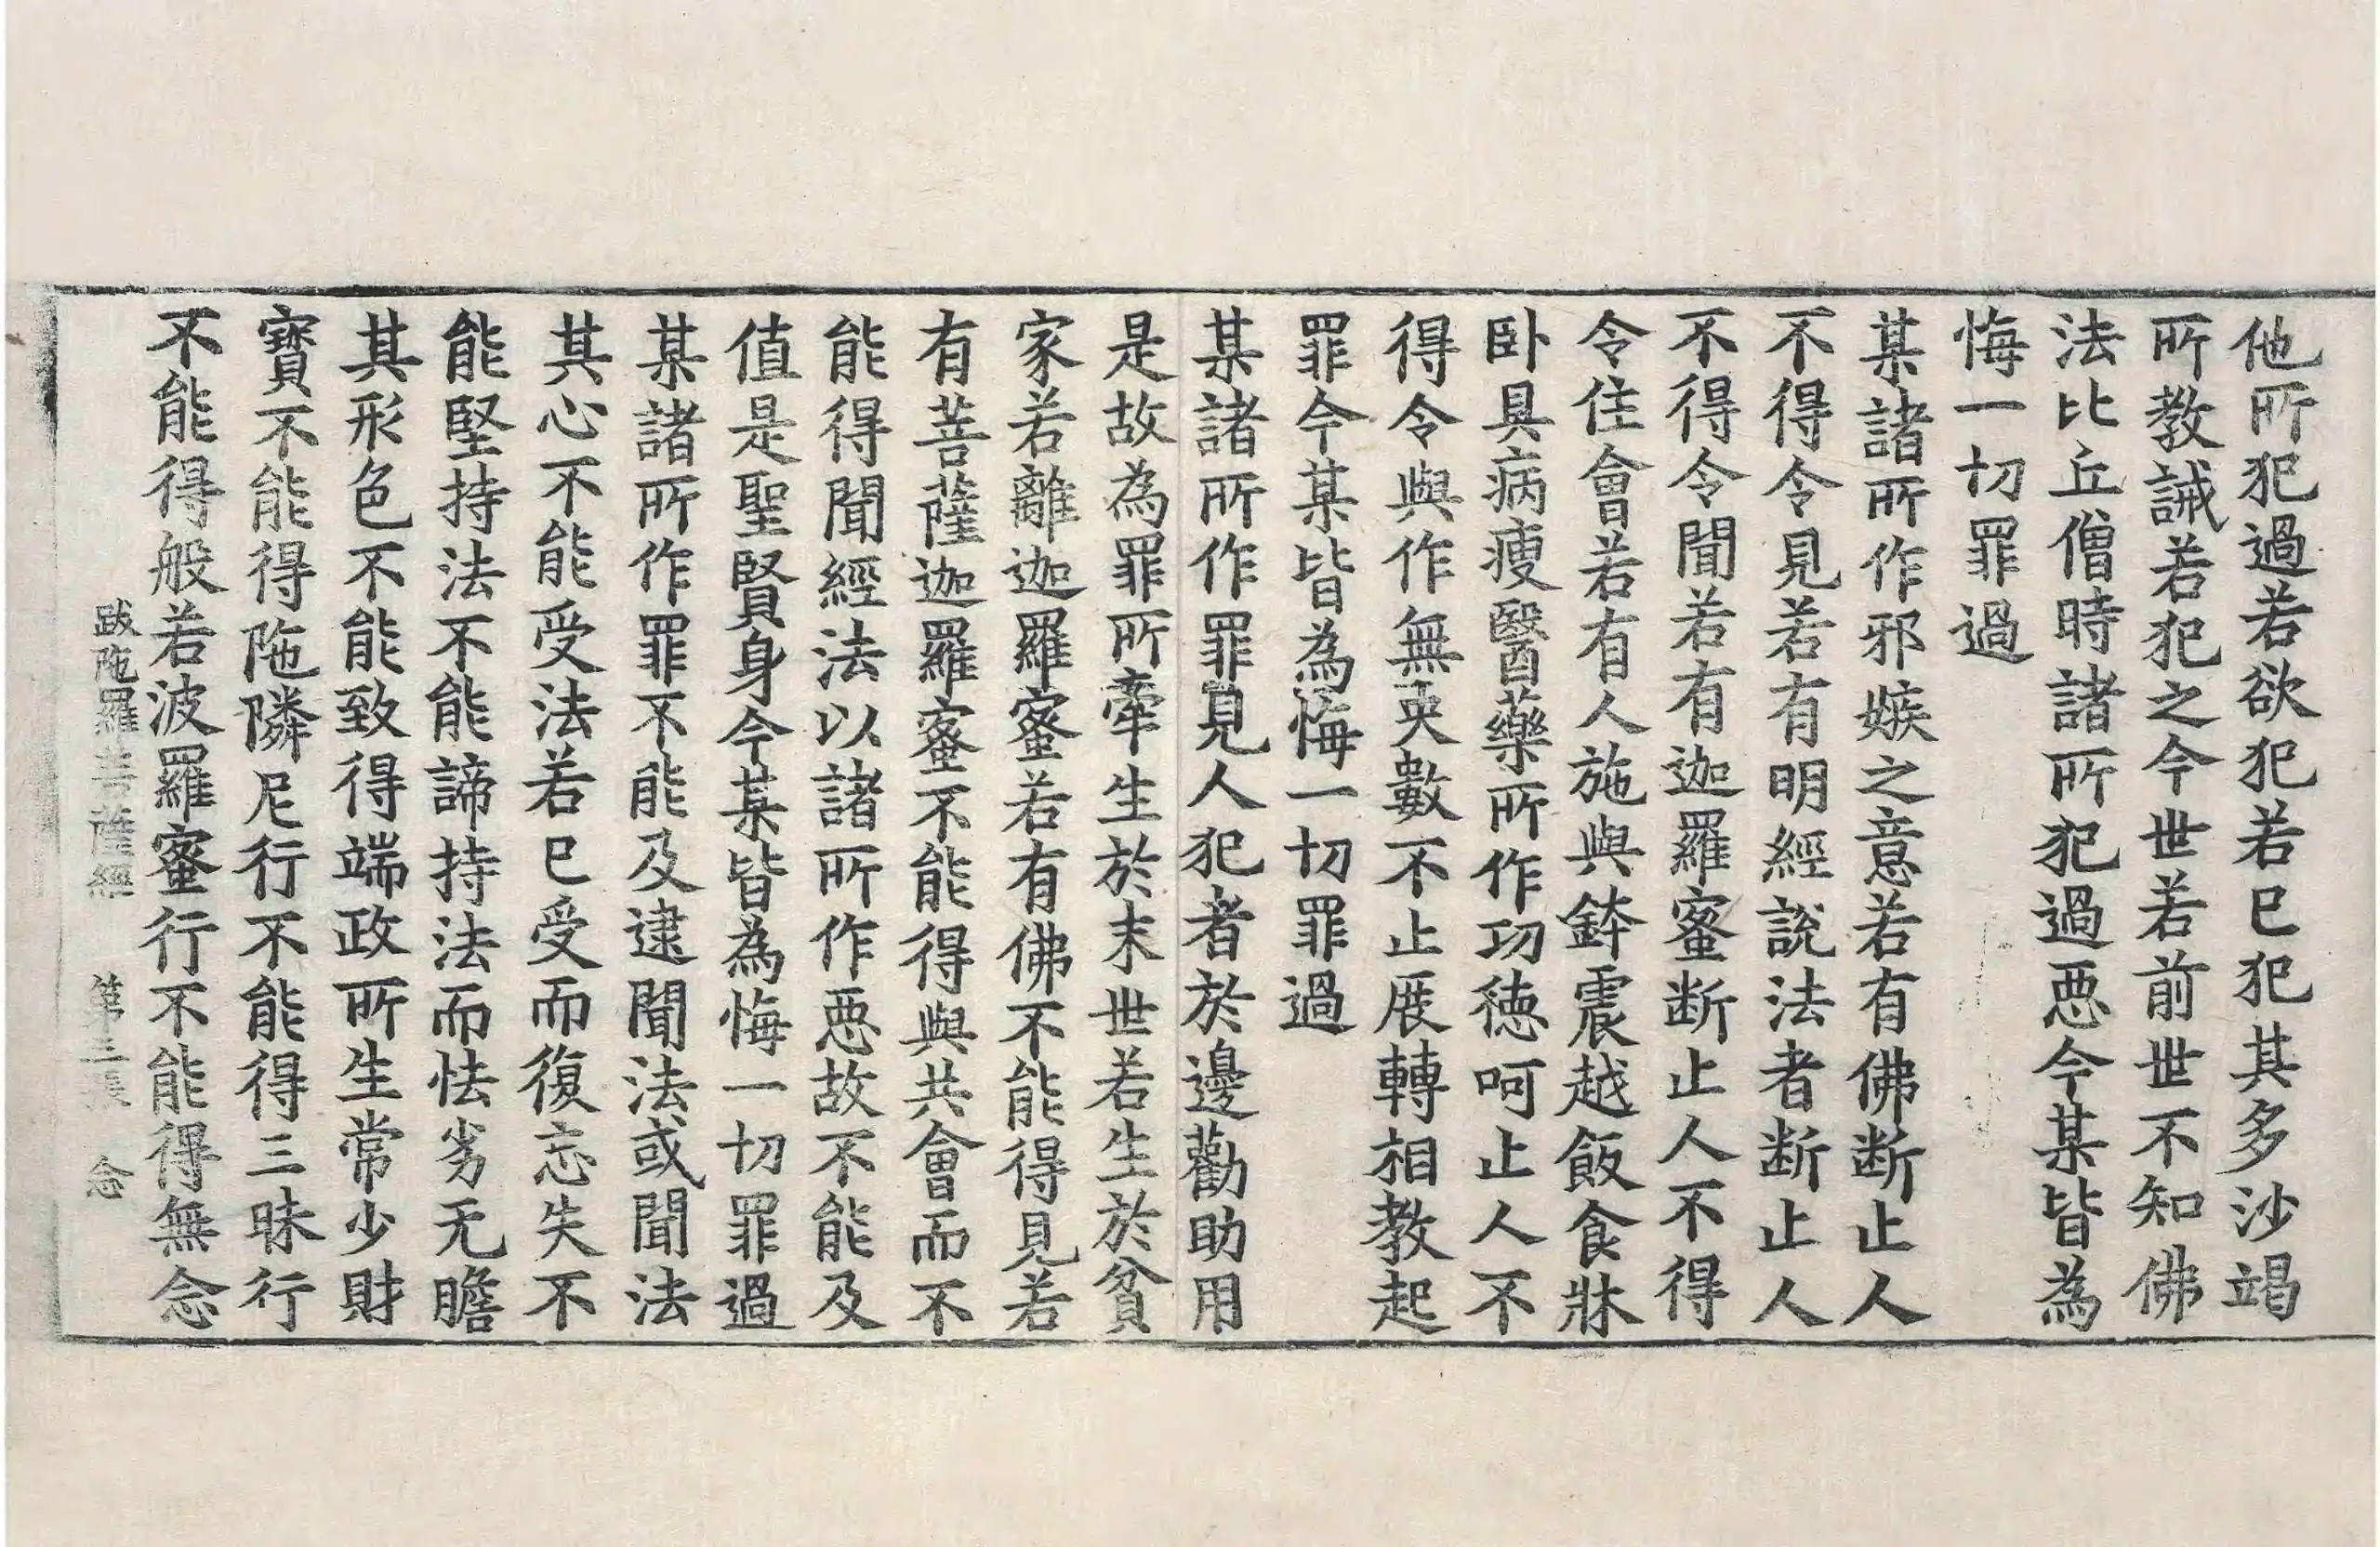 他所犯過若欲犯若已犯其多沙竭
所教誡若犯之今世若前世不知佛
法比丘僧時諸所犯過惡今某皆為
悔一切罪過
某諸所作邪嫉之意若有佛断止人
不得令見若有明經說法者断止人
不得令聞若有迦羅蜜断止人不得
令住會若有人施與鉢震越飯食牀
卧具病瘦醫藥所作功徳呵止人不
得令與作無央數不止展轉相教起
罪今某皆為悔一切罪過
某諸所作罪見人犯者於邊勸助用
是故為罪所牽生於末世若生於貧
家若離迦羅蜜若有佛不能得見若
有菩薩迦羅蜜不能得與共會而不
能得聞經法以諸所作惡故不能及
值是聖賢身今某皆為悔一切罪過
某諸所作罪不能及逮聞法或聞法
其心不能受法若已受而復忘失不
能堅持法不能諦持法而怯劣无瞻
其形色不能致得端政所生常少財
寶不能得陁隣尼行不能得三昧行
不能得般若波羅蜜行不能得無念
跋陁羅菩薩經 第三張 念